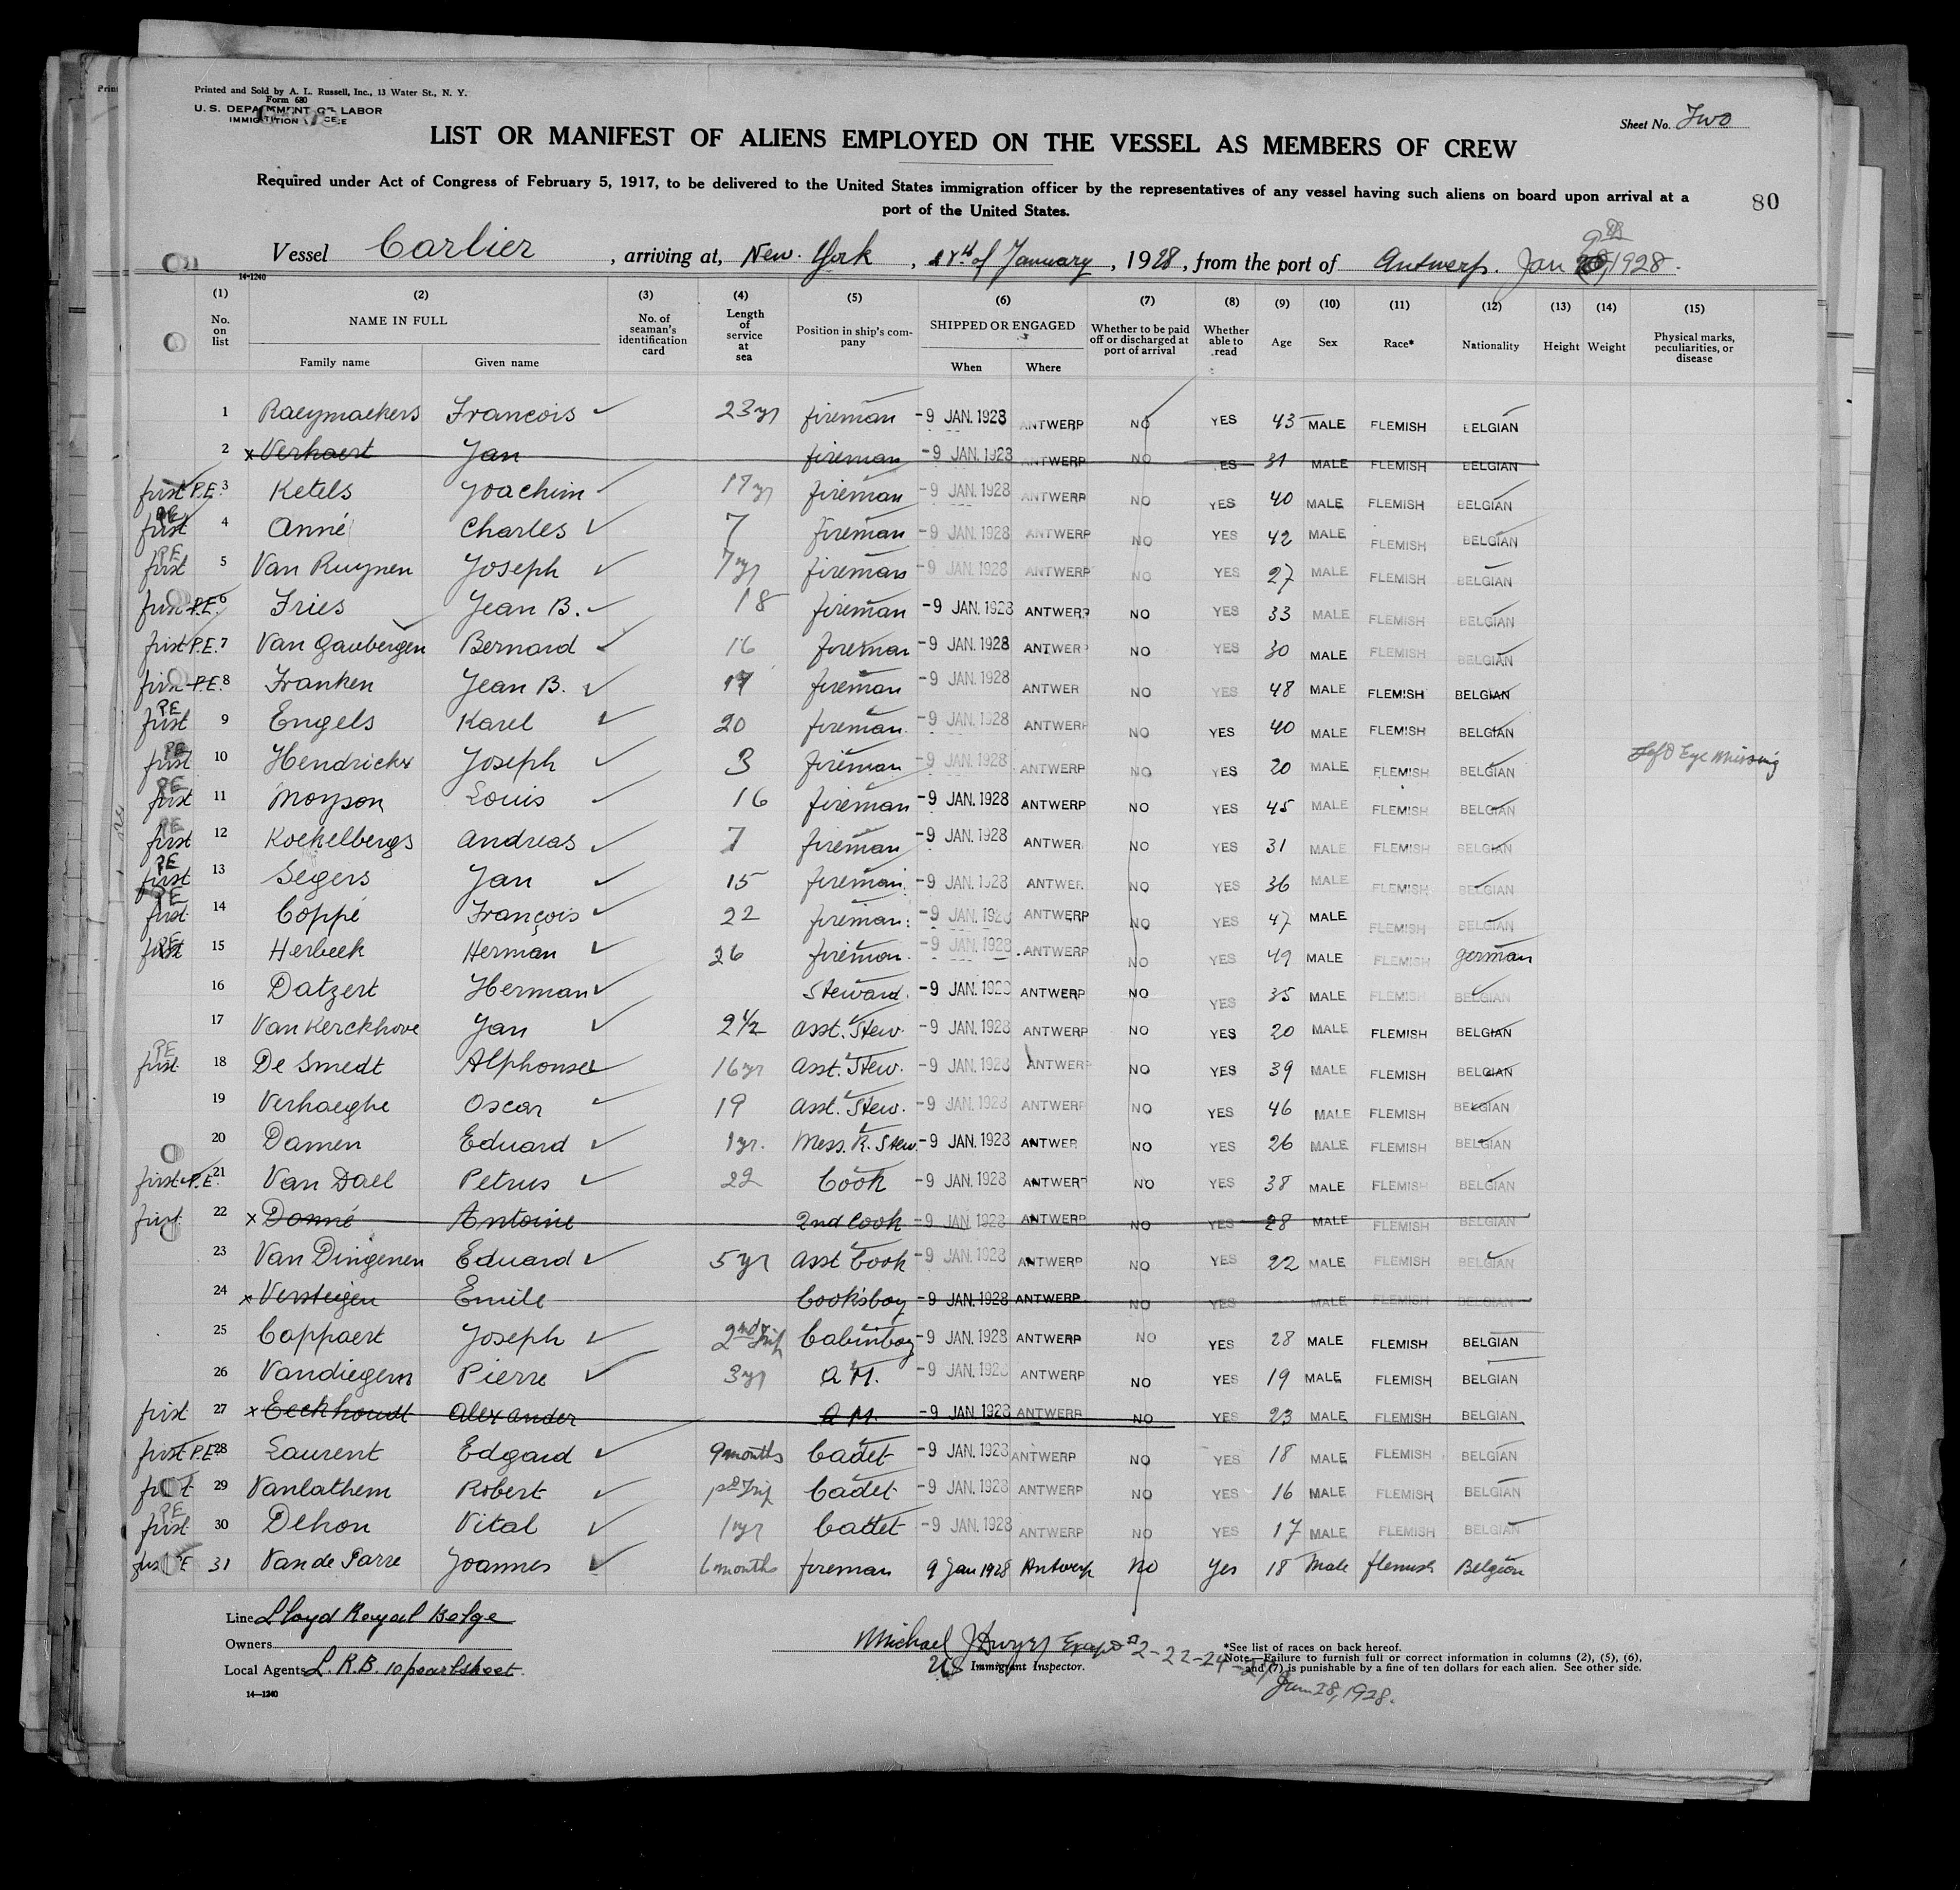 Printed and Sold by A. L. Russell, Inc., 13 Water St., N. Y.
Form 680
U. S. DEPARTMENT OF LABOR
IMMIGRATION SERVICE
Sheet No. Two
LIST OR MANIFEST OF ALIENS EMPLOYED ON THE VESSEL AS MEMBERS OF CREW
Required under Act of Congress of February 5, 1917, to be delivered to the United States immigration officer by the representatives of any vessel having such aliens on board upon arrival at a
port of the United States.
80
Vessel Carlier, arriving at, New York, 28th of January, 1928, from the port of Antwerp. Jan 9th 1928.
14-1240
(1) (2) (3) (4) (5) (6) (7) (8) (9) (10) (11) (12) (13) (14) (15)
No. on list NAME IN FULL Family name Given name No. of seaman's identification card Length of service at sea Position in ship's company SHIPPED OR ENGAGED When Where Whether to be paid off or discharged at port of arrival Whether able to read Age Sex Race* Nationality Height Weight Physical marks, peculiarities, or disease
1 Raeymaekers Francois 23 yr fireman -9 JAN. 1928 ANTWERP NO YES 43 MALE FLEMISH BELGIAN
2 x Verhaert Jan fireman -9 JAN. 1928 ANTWERP NO YES 31 MALE FLEMISH BELGIAN
first P.E. 3 Ketels Joachim 17 yr fireman -9 JAN. 1928 ANTWERP NO YES 40 MALE FLEMISH BELGIAN
first PE 4 Anné Charles 7 fireman -9 JAN. 1928 ANTWERP NO YES 42 MALE FLEMISH BELGIAN
first PE 5 Van Ruynen Joseph 7 yr fireman -9 JAN. 1928 ANTWERP NO YES 27 MALE FLEMISH BELGIAN
first P.E. 6 Fries Jean B. 18 fireman -9 JAN. 1928 ANTWERP NO YES 33 MALE FLEMISH BELGIAN
first P.E. 7 Van Gaubergen Bernard 16 fireman -9 JAN. 1928 ANTWERP NO YES 30 MALE FLEMISH BELGIAN
first P.E. 8 Franken Jean B. 17 fireman -9 JAN. 1928 ANTWER NO YES 48 MALE FLEMISH BELGIAN
first PE 9 Engels Karel 20 fireman -9 JAN. 1928 ANTWERP NO YES 40 MALE FLEMISH BELGIAN
first PE 10 Hendrickx Joseph 3 fireman -9 JAN. 1928 ANTWERP NO YES 20 MALE FLEMISH BELGIAN Left Eye Missing
first PE 11 Moyson Louis 16 fireman -9 JAN. 1928 ANTWERP NO YES 45 MALE FLEMISH BELGIAN
first PE 12 Kockelbergs Andreas 7 fireman -9 JAN. 1928 ANTWER NO YES 31 MALE FLEMISH BELGIAN
first PE 13 Segers Jan 15 fireman -9 JAN. 1928 ANTWER NO YES 36 MALE FLEMISH BELGIAN
first PE 14 Coppé François 22 fireman -9 JAN. 1928 ANTWERP NO YES 47 MALE FLEMISH BELGIAN
first PE 15 Herbeek Herman 26 fireman -9 JAN. 1928 ANTWERP NO YES 49 MALE FLEMISH german
16 Datzert Herman Steward. -9 JAN. 1928 ANTWERP NO YES 35 MALE FLEMISH BELGIAN
17 Van Kerckhove Jan 2 1/2 Asst. Stew. -9 JAN. 1928 ANTWERP NO YES 20 MALE FLEMISH BELGIAN
first PE 18 De Smedt Alphonse 16 yr Asst. Stew. -9 JAN. 1928 ANTWERP NO YES 39 MALE FLEMISH BELGIAN
19 Verhaeghe Oscar 19 Asst. Stew. -9 JAN. 1928 ANTWERP NO YES 46 MALE FLEMISH BELGIAN
20 Damen Eduard 1 yr. Mess. R. Stew. -9 JAN. 1928 ANTWER NO YES 26 MALE FLEMISH BELGIAN
first P.E. 21 Van Dael Petrus 22 Cook -9 JAN. 1928 ANTWERP NO YES 38 MALE FLEMISH BELGIAN
first 22 x Donné Antoine 2nd Cook -9 JAN. 1928 ANTWERP NO YES 28 MALE FLEMISH BELGIAN
23 Van Dingenen Eduard 5 yr Asst Cook -9 JAN. 1928 ANTWERP NO YES 22 MALE FLEMISH BELGIAN
24 x Versteigen Emile Cook's boy -9 JAN. 1928 ANTWERP NO YES MALE FLEMISH BELGIAN
25 Cappaert Joseph 2nd Trip Cabinboy -9 JAN. 1928 ANTWERP NO YES 28 MALE FLEMISH BELGIAN
26 Vandiegem Pierre 3 yr A M. -9 JAN. 1928 ANTWERP NO YES 19 MALE FLEMISH BELGIAN
first 27 x Eeckhoudt Alexander A M. -9 JAN. 1928 ANTWERP NO YES 23 MALE FLEMISH BELGIAN
first P.E. 28 Laurent Edgard 9 months Cadet -9 JAN. 1928 ANTWERP NO YES 18 MALE FLEMISH BELGIAN
first 29 Vanlathem Robert 1st Trip Cadet -9 JAN. 1928 ANTWERP NO YES 16 MALE FLEMISH BELGIAN
first PE 30 Dehon Vital 1 yr Cadet -9 JAN. 1928 ANTWERP NO YES 17 MALE FLEMISH BELGIAN
first PE 31 Van de Parre Joannes 6 months fireman 9 Jan 1928 Antwerp No Yes 18 Male flemish Belgian
Line Lloyd Royal Belge
Owners
Local Agents L. R. B. 10 pearl street.
14—1240
Michael J Dwyer Except 2-22-24-27
US Immigrant Inspector.
Jan 28, 1928.
*See list of races on back hereof.
Note—Failure to furnish full or correct information in columns (2), (5), (6),
and (7) is punishable by a fine of ten dollars for each alien. See other side.